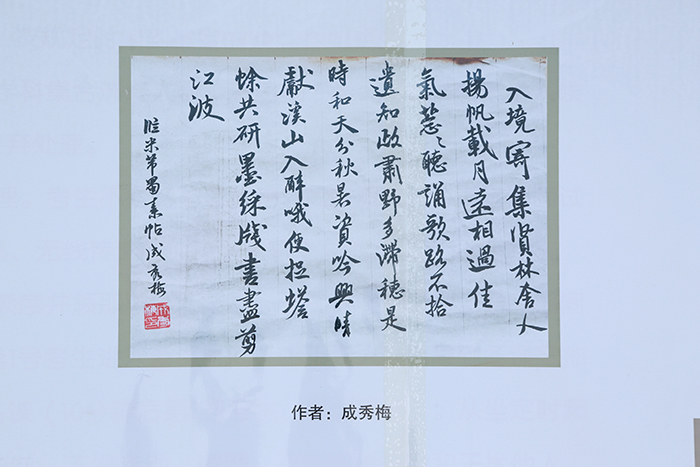 入境寄集賢林舍人
揚帆載月遠相過佳
氣葱〻聽誦歌路不拾
遺知政肅野多滯穗是
時和天分秋暑資吟興晴
獻溪山入醉哦便捉蟾
蜍共研墨綵牋書盡剪
江波
臨米芾蜀素帖成秀梅
作者：成秀梅